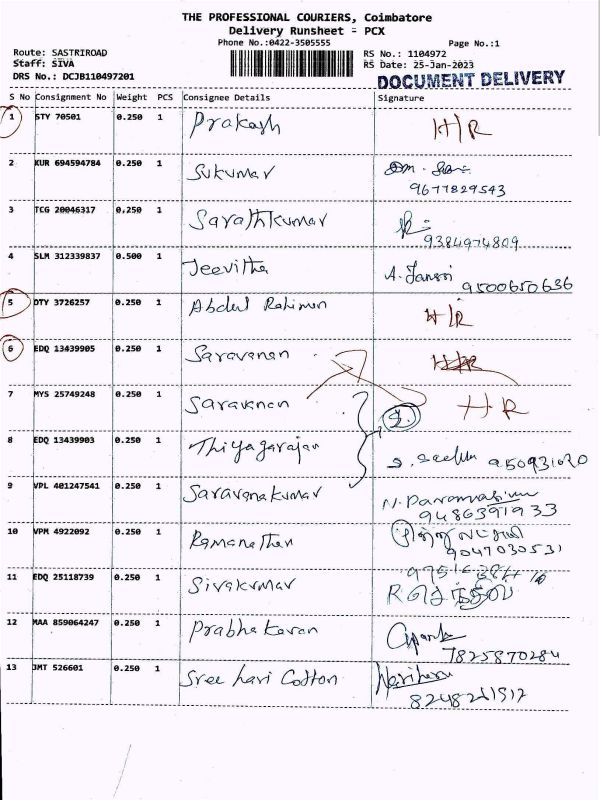 THE PROFESSIONAL COURIERS, Coimbatore
Delivery Runsheet - PCX
Phone No.:0422-3505555
Page No.:1
Route: SASTRIROAD
RS No.: 1104972
Staff: SIVA
RS Date: 25-Jan-2023
DRS No.: DCJB110497201
DOCUMENT DELIVERY
S No Consignment No Weight PCS Consignee Details Signature
1 STY 70501 0.250 1 Prakash H/R
2 KUR 694594784 0.250 1 Sukumar
9677829543
3 TCG 20046317 0.250 1 Sarathkumar
9384974809
4 SLM 312339837 0.500 1 Jeevitha A. Jansi 9500650636
5 DTY 3726257 0.250 1 Abdul Rahiman H/R
6 EDQ 13439905 0.250 1 Saravanan
7 MYS 25749248 0.250 1 Saravanan HR
8 EDQ 13439903 0.250 1 Thiyagarajan
9 VPL 401247541 0.250 1 Saravanakumar
9486391933
10 VPM 4922092 0.250 1 Ramanathan
9047030531
11 EDQ 25118739 0.250 1 Sivakumar
12 MAA 859064247 0.250 1 Prabhakaran
7825870284
13 JMT 526601 0.250 1 Sree hari Cotton